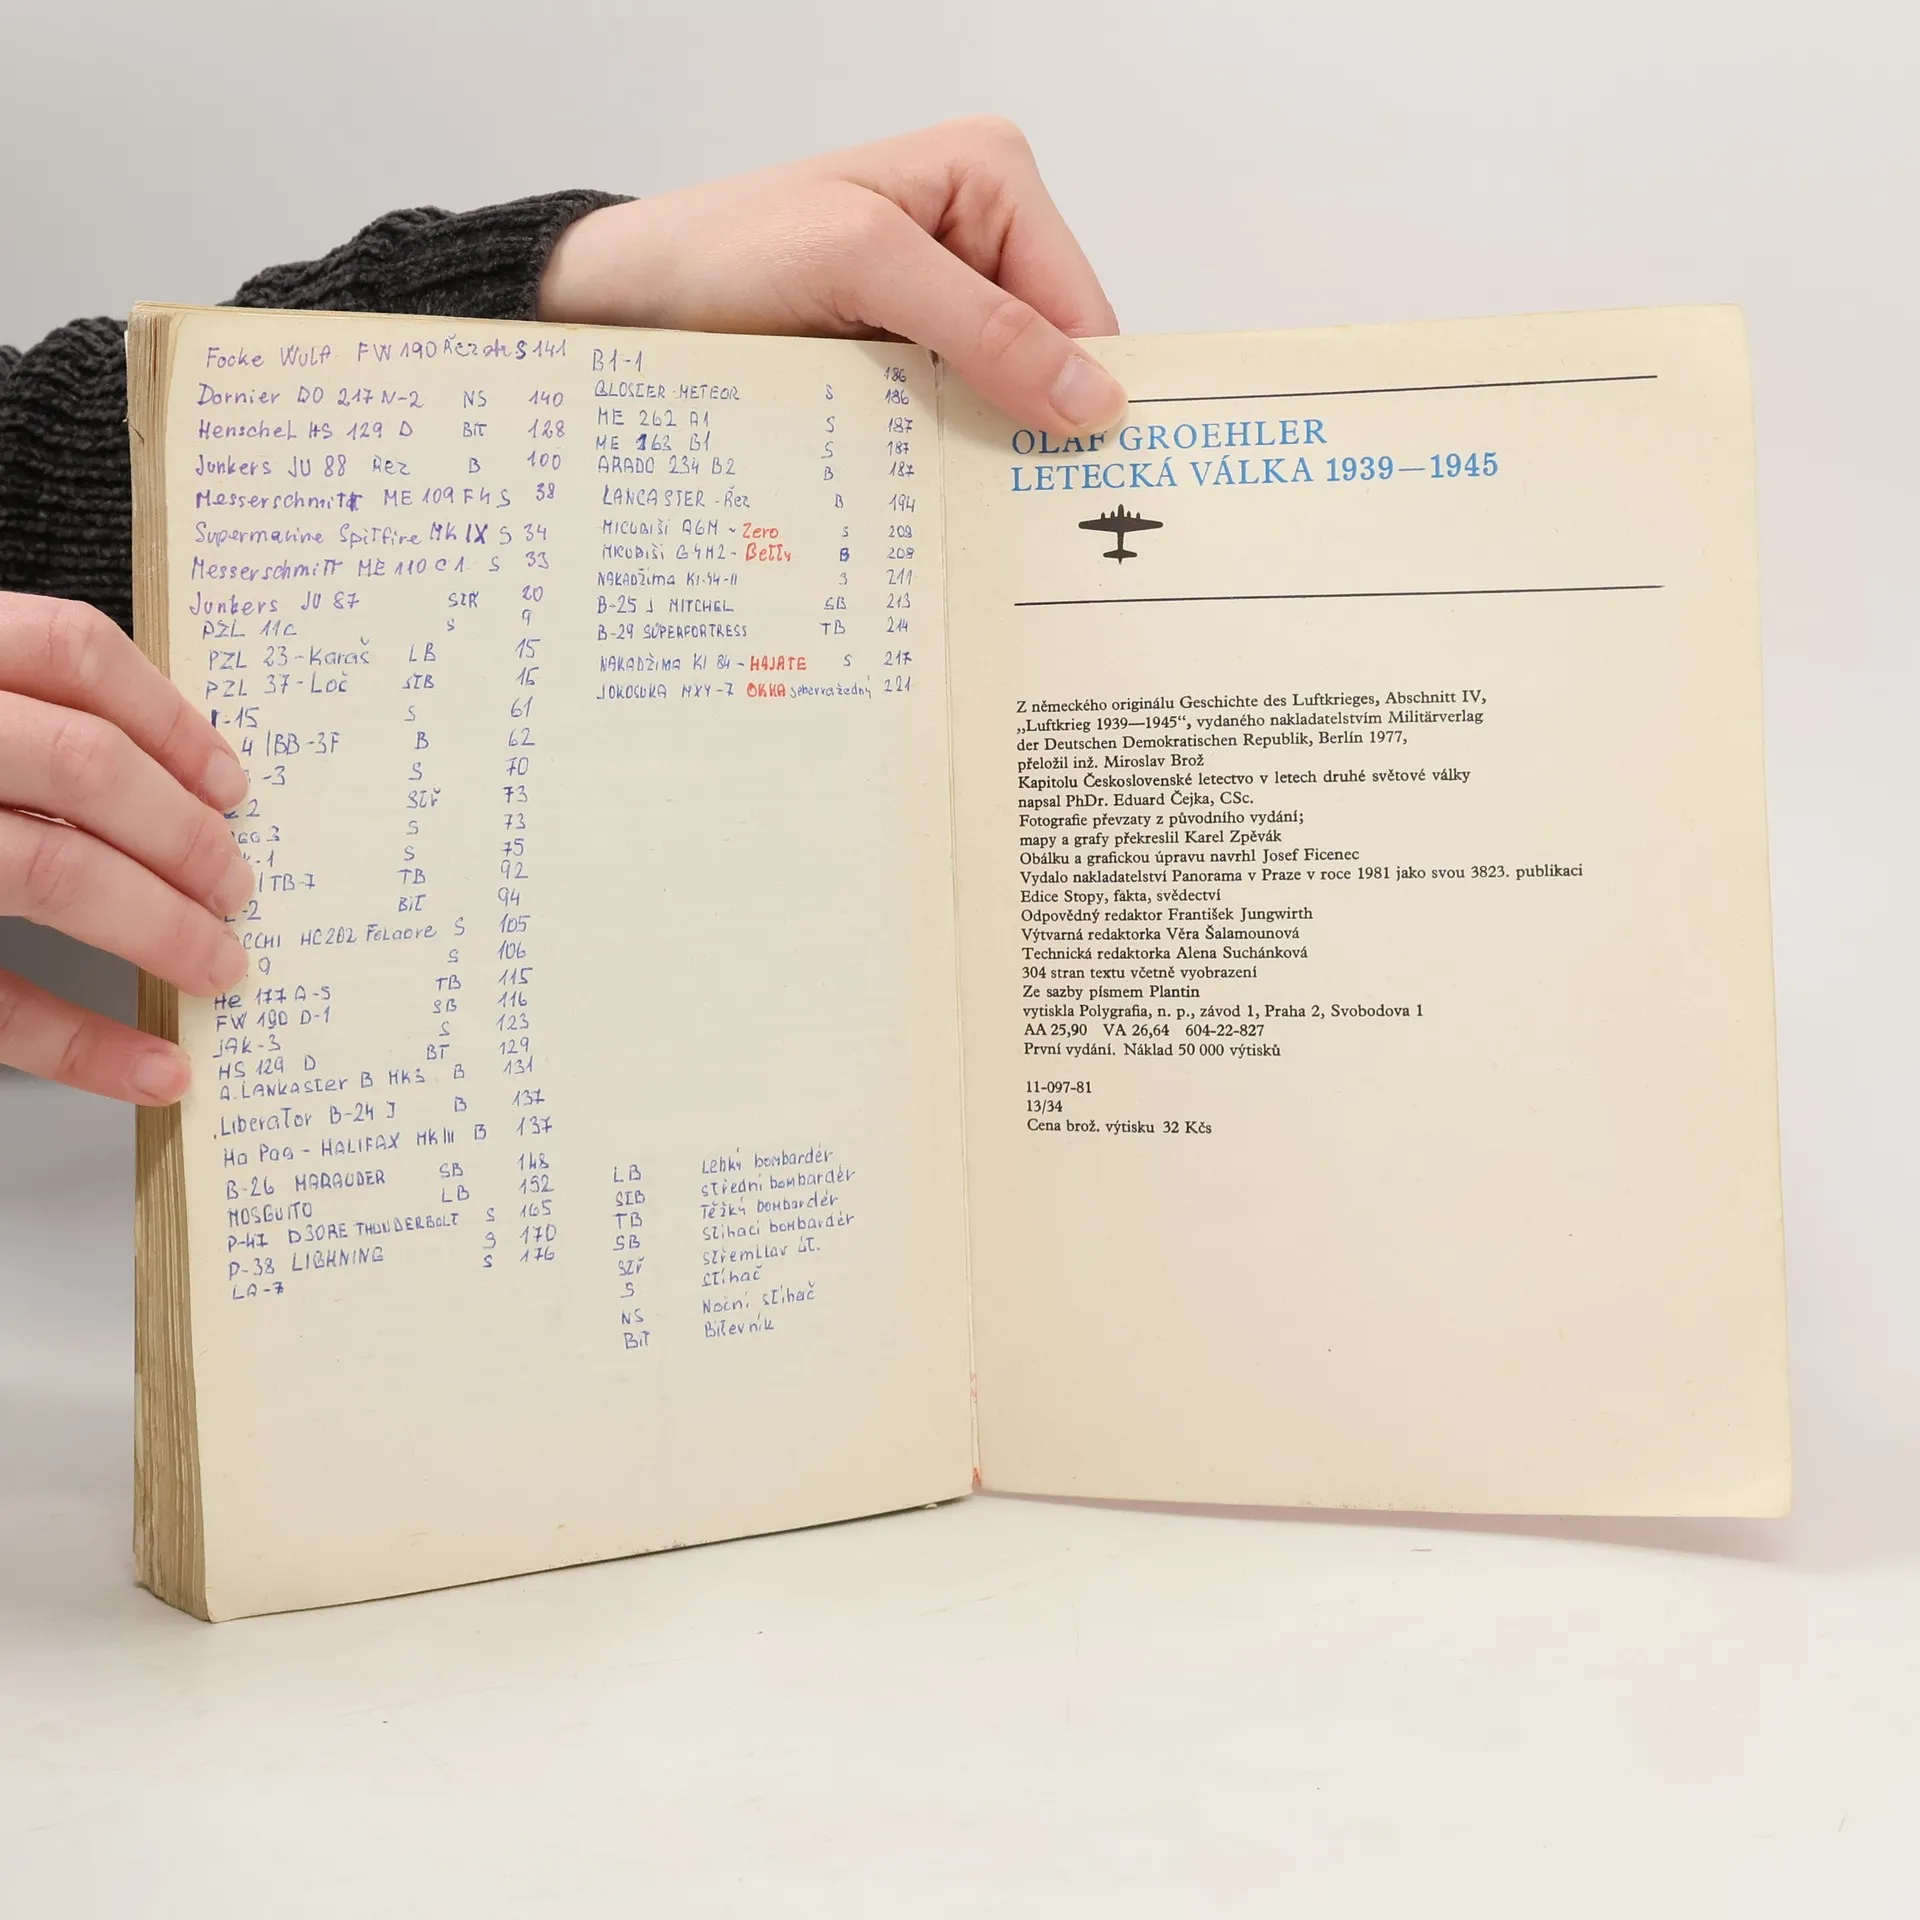 Focke Wulf FW 190 Řez dr S 141
Dornier DO 217 N-2 NS 140
Henschel HS 129 D BIT 128
Junkers JU 88 Řez B 100
Messerschmitt ME 109 F4 S 38
Supermarine Spitfire Mk IX S 34
Messerschmitt ME 110 C1. S 33
Junkers JU 87 STŘ 20
PZL 11c S 9
PZL 23-Karaš LB 15
PZL 37-Loč STB 15
-15 S 61
4 /BB-3F B 62
-3 S 70
2 STŘ 73
GG3 S 73
-1 S 75
/TB-7 TB 92
-2 BIT 94
CCHI HC202 Folgore S 105
9 S 106
He 177 A-5 TB 115
FW 190 D-1 SB 116
JAK-3 S 123
HS 129 D BT 129
A. LANKASTER B MK3 B 131
Liberator B-24 J B 137
Ha Pag - HALIFAX MK III B 137
B-26 MARAUDER SB 148
MOSGUITO LB 152
P-47 D30RE THUNDERBOLT S 165
P-38 LIGHNING S 170
LA-7 S 176
B1-1 186
GLOSTER-METEOR S 186
ME 262 A1 S 187
ME 163 B1 S 187
ARADO 234 B2 B 187
LANCASTER-Řez B 194
MICUBIŠI A6M - Zero S 208
MICUBIŠI G4M2 - Betty B 208
NAKADŽIMA KI-44-II S 211
B-25 J MITCHEL SB 213
B-29 SUPERFORTRESS TB 214
NAKADŽIMA KI 84 - HAJATE S 217
JOKOSUKA MXY-7 OKKA sebevražedný 221
LB Lehký bombardér
STB střední bombardér
TB Těžký bombardér
SB Stíhací bombardér
STř střemhlav út.
S Stíhač
NS Noční stíhač
BIT Bitevník
OLAF GROEHLER
LETECKÁ VÁLKA 1939—1945
Z německého originálu Geschichte des Luftkrieges, Abschnitt IV,
„Luftkrieg 1939—1945“, vydaného nakladatelstvím Militärverlag
der Deutschen Demokratischen Republik, Berlín 1977,
přeložil inž. Miroslav Brož
Kapitolu Československé letectvo v letech druhé světové války
napsal PhDr. Eduard Čejka, CSc.
Fotografie převzaty z původního vydání;
mapy a grafy překreslil Karel Zpěvák
Obálku a grafickou úpravu navrhl Josef Ficenec
Vydalo nakladatelství Panorama v Praze v roce 1981 jako svou 3823. publikaci
Edice Stopy, fakta, svědectví
Odpovědný redaktor František Jungwirth
Výtvarná redaktorka Věra Šalamounová
Technická redaktorka Alena Suchánková
304 stran textu včetně vyobrazení
Ze sazby písmem Plantin
vytiskla Polygrafia, n. p., závod 1, Praha 2, Svobodova 1
AA 25,90 VA 26,64 604-22-827
První vydání. Náklad 50 000 výtisků
11-097-81
13/34
Cena brož. výtisku 32 Kčs